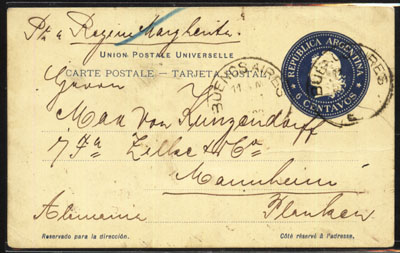 Pr. a Regina Margherita.
UNION POSTALE UNIVERSELLE
CARTE POSTALE - TARJETA POSTAL
REPUBLICA ARGENTINA
6 CENTAVOS
BUENOS AIRES
Herrn
Max von Kunzendorff
Zillac & Co
Mannheim
Alemania Planken
Reservado para la dirección. Côté réservé à l'adresse.